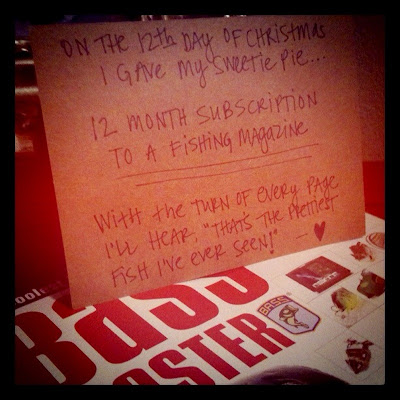 ON THE 12th DAY OF CHRISTMAS
I GAVE MY SWEETIE PIE...
12 MONTH SUBSCRIPTION
TO A FISHING MAGAZINE
WITH the TURN OF EVERY PAGE
I'LL HEAR, "THAT'S THE PRETTIEST
FISH I'VE EVER SEEN!" — ♥
BASS
BASS